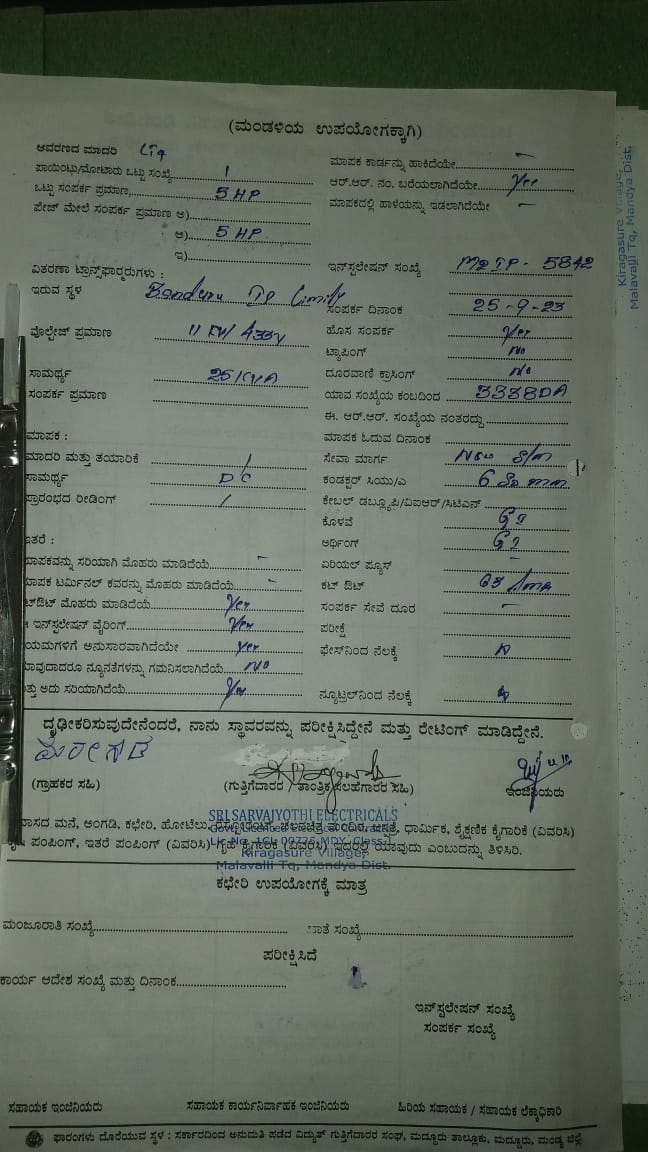 (ಮಂಡಳಿಯ ಉಪಯೋಗಕ್ಕಾಗಿ)
ಆವರಣದ ಮಾದರಿ
ಪಾಯಿಂಟು/ಮೋಟಾರು ಒಟ್ಟು ಸಂಖ್ಯೆ 1
ಒಟ್ಟು ಸಂಪರ್ಕ ಪ್ರಮಾಣ 5 HP
ಪೇಜ್ ಮೇಲೆ ಸಂಪರ್ಕ ಪ್ರಮಾಣ ಅ)
ಆ) 5 HP
ಇ)
ವಿತರಣಾ ಟ್ರಾನ್ಸ್‌ಫಾರ್ಮರುಗಳು :
ಇರುವ ಸ್ಥಳ
ವೊಲ್ಟೇಜ್ ಪ್ರಮಾಣ 11 KV/ 433V
ಸಾಮರ್ಥ್ಯ 25 KVA
ಸಂಪರ್ಕ ಪ್ರಮಾಣ
ಮಾಪಕ :
ಮಾದರಿ ಮತ್ತು ತಯಾರಿಕೆ
ಸಾಮರ್ಥ್ಯ DC
ಪ್ರಾರಂಭದ ರೀಡಿಂಗ್
ಮಾಪಕವನ್ನು ಸರಿಯಾಗಿ ಮೊಹರು ಮಾಡಿದೆಯೆ -
ಮಾಪಕ ಟರ್ಮಿನಲ್ ಕವರನ್ನು ಮೊಹರು ಮಾಡಿದೆಯೆ -
ಮೊಹರು ಮಾಡಿದೆಯೆ Yes
ಇನ್‌ಸ್ಟಲೇಷನ್ ವೈರಿಂಗ್ Yes
ಅನುಸಾರವಾಗಿದೆಯೇ Yes
ನ್ಯೂನತೆಗಳನ್ನು ಗಮನಿಸಲಾಗಿದೆಯೆ NO
ಅದು ಸರಿಯಾಗಿದೆಯೆ Yes
ಮಾಪಕ ಕಾರ್ಡನ್ನು ಹಾಕಿದೆಯೇ -
ಆರ್.ಆರ್. ನಂ. ಬರೆಯಲಾಗಿದೆಯೇ Yes
ಮಾಪಕದಲ್ಲಿ ಹಾಳೆಯನ್ನು ಇಡಲಾಗಿದೆಯೇ -
ಇನ್‌ಸ್ಟಲೇಷನ್ ಸಂಖ್ಯೆ M2IP - 5842
ಸಂಪರ್ಕ ದಿನಾಂಕ 25-9-23
ಹೊಸ ಸಂಪರ್ಕ Yes
ಟ್ಯಾಪಿಂಗ್ No
ದೂರವಾಣಿ ಕ್ರಾಸಿಂಗ್ No
ಯಾವ ಸಂಖ್ಯೆಯ ಕಂಬದಿಂದ
ಈ. ಆರ್.ಆರ್. ಸಂಖ್ಯೆಯ ನಂತರದ್ದು
ಮಾಪಕ ಓದುವ ದಿನಾಂಕ
ಸೇವಾ ಮಾರ್ಗ New S/m
ಕಂಡಕ್ಟರ್ ಸಿಯು/ಎ 6 Sq mm
ಕೇಬಲ್ ಡಬ್ಲ್ಯೂಪಿ/ವಿಐಆರ್/ಸಿಟಿಎಸ್
ಕೊಳವೆ GI
ಅರ್ಥಿಂಗ್ GI
ಏರಿಯಲ್ ಫ್ಯೂಸ್ -
ಕಟ್ ಔಟ್
ಸಂಪರ್ಕ ಸೇವೆ ದೂರ -
ಪರೀಕ್ಷೆ
ಫೇಸ್‌ನಿಂದ ನೆಲಕ್ಕೆ
ನ್ಯೂಟ್ರಲ್‌ನಿಂದ ನೆಲಕ್ಕೆ
ದೃಢೀಕರಿಸುವುದೇನೆಂದರೆ, ನಾನು ಸ್ಥಾವರವನ್ನು ಪರೀಕ್ಷಿಸಿದ್ದೇನೆ ಮತ್ತು ರೇಟಿಂಗ್ ಮಾಡಿದ್ದೇನೆ.
(ಗ್ರಾಹಕರ ಸಹಿ)
(ಗುತ್ತಿಗೆದಾರರ / ತಾಂತ್ರಿಕ ಸಲಹೆಗಾರರ ಸಹಿ)
ಇಂಜಿನಿಯರು
SRI SARVAJYOTHI ELECTRICALS
ವಾಸದ ಮನೆ, ಅಂಗಡಿ, ಕಛೇರಿ, ಹೋಟೆಲು, ಧಾರ್ಮಿಕ, ಶೈಕ್ಷಣಿಕ ಕೈಗಾರಿಕೆ (ವಿವರಿಸಿ)
ಪಂಪಿಂಗ್, ಇತರೆ ಪಂಪಿಂಗ್ (ವಿವರಿಸಿ) ಯಾವುದು ಎಂಬುದನ್ನು ತಿಳಿಸಿರಿ.
Kiragasure Village,
Malavalli Tq, Mandya Dist.
ಕಛೇರಿ ಉಪಯೋಗಕ್ಕೆ ಮಾತ್ರ
ಮಂಜೂರಾತಿ ಸಂಖ್ಯೆ
ಖಾತೆ ಸಂಖ್ಯೆ
ಪರೀಕ್ಷಿಸಿದೆ
ಕಾರ್ಯ ಆದೇಶ ಸಂಖ್ಯೆ ಮತ್ತು ದಿನಾಂಕ
ಇನ್‌ಸ್ಟಲೇಷನ್ ಸಂಖ್ಯೆ
ಸಂಪರ್ಕ ಸಂಖ್ಯೆ
ಸಹಾಯಕ ಇಂಜಿನಿಯರು
ಸಹಾಯಕ ಕಾರ್ಯನಿರ್ವಾಹಕ ಇಂಜಿನಿಯರು
ಹಿರಿಯ ಸಹಾಯಕ / ಸಹಾಯಕ ಲೆಕ್ಕಾಧಿಕಾರಿ
ಫಾರಂಗಳು ದೊರೆಯುವ ಸ್ಥಳ : ಸರ್ಕಾರದಿಂದ ಅನುಮತಿ ಪಡೆದ ವಿದ್ಯುತ್ ಗುತ್ತಿಗೆದಾರರ ಸಂಘ, ಮದ್ದೂರು ತಾಲ್ಲೂಕು, ಮದ್ದೂರು, ಮಂಡ್ಯ ಜಿಲ್ಲೆ.
Kiragasure Village,
Malavalli Tq, Mandya Dist.